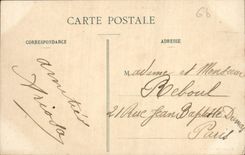 6b
CARTE POSTALE
CORRESPONDANCE
ADRESSE
amitiés
M adame et Monsieur
Reboul
21 Rue Jean Baptiste Dumay
Paris